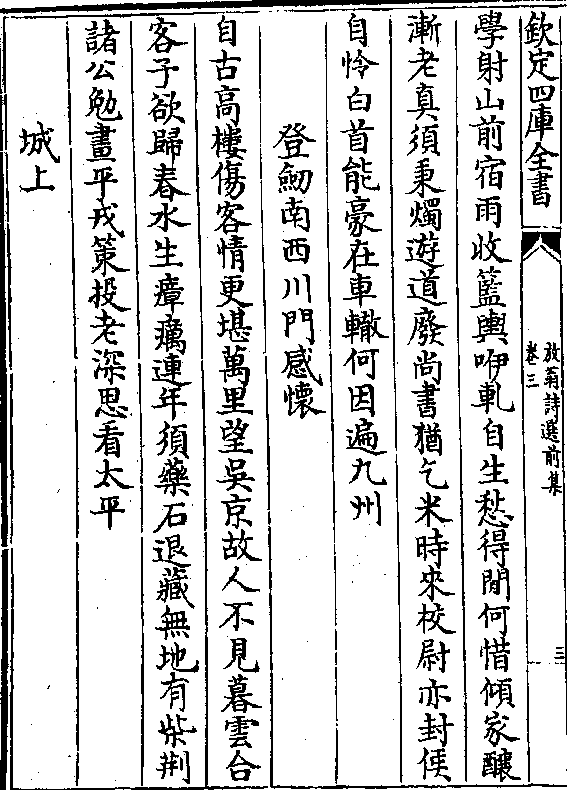 欽定四庫全書
放翁詩選前集
卷三
三
學射山前宿雨收籃輿咿軋自生愁得閒何惜傾家釀
漸老真須秉燭遊道廢尚書猶乞米時來校尉亦封侯
自怜白首能豪在車轍何因遍九州
登劒南西川門感懷
自古高樓傷客情更堪萬里望吳京故人不見暮雲合
客子欲歸春水生瘴癘連年須藥石退藏無地有柴荆
諸公勉畫平戎策投老深思看太平
城上